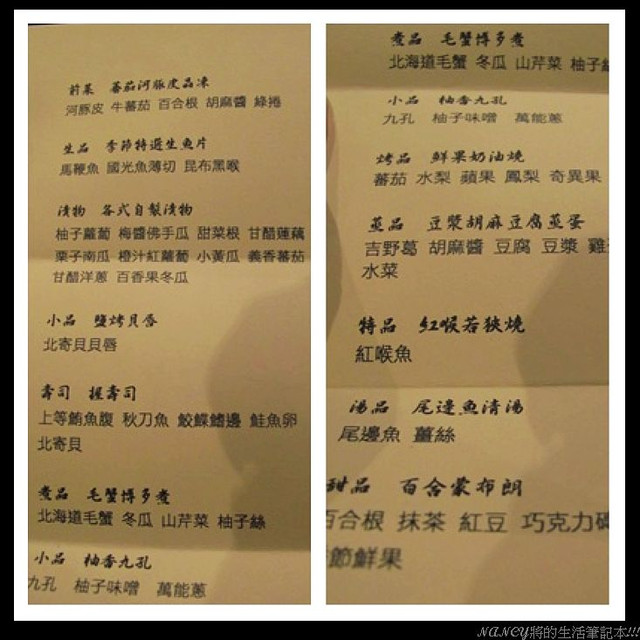 前菜 蕃茄河豚皮晶凍
河豚皮 牛蕃茄 百合根 胡麻醬 綠捲
生品 季節特選生魚片
馬鞭魚 國光魚薄切 昆布黑喉
漬物 各式自製漬物
柚子蘿蔔 梅醬佛手瓜 甜菜根 甘醋蓮藕
栗子南瓜 橙汁紅蘿蔔 小黃瓜 義香蕃茄
甘醋洋蔥 百香果冬瓜
小品 鹽烤貝唇
北寄貝貝唇
壽司 握壽司
上等鮪魚腹 秋刀魚 鮫鰈鰭邊 鮭魚卵
北寄貝
煮品 毛蟹博多煮
北海道毛蟹 冬瓜 山芹菜 柚子絲
小品 柚香九孔
九孔 柚子味噌 萬能蔥
煮品 毛蟹博多煮
北海道毛蟹 冬瓜 山芹菜 柚子絲
小品 柚香九孔
九孔 柚子味噌 萬能蔥
烤品 鮮果奶油燒
蕃茄 水梨 蘋果 鳳梨 奇異果
蒸品 豆漿胡麻豆腐蒸蛋
吉野葛 胡麻醬 豆腐 豆漿 雞
水菜
特品 紅喉若狹燒
紅喉魚
湯品 尾邊魚清湯
尾邊魚 薑絲
甜品 百合蒙布朗
百合根 抹茶 紅豆 巧克力磚
節鮮果
NANCY將的生活筆記本!!!